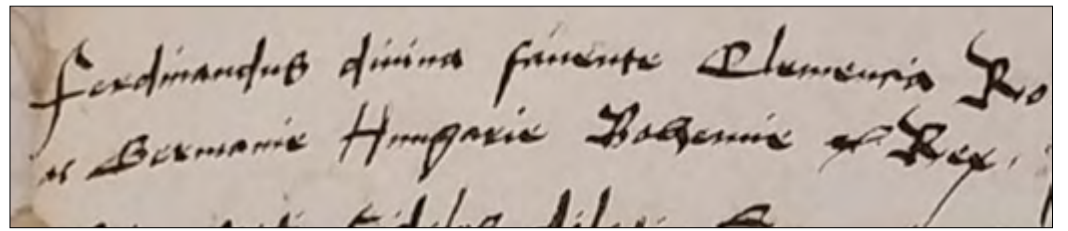 Ferdinandus diuina fauente Clemencia Ro
ac Germanie Hungarie Bohemie etc Rex.
fideles